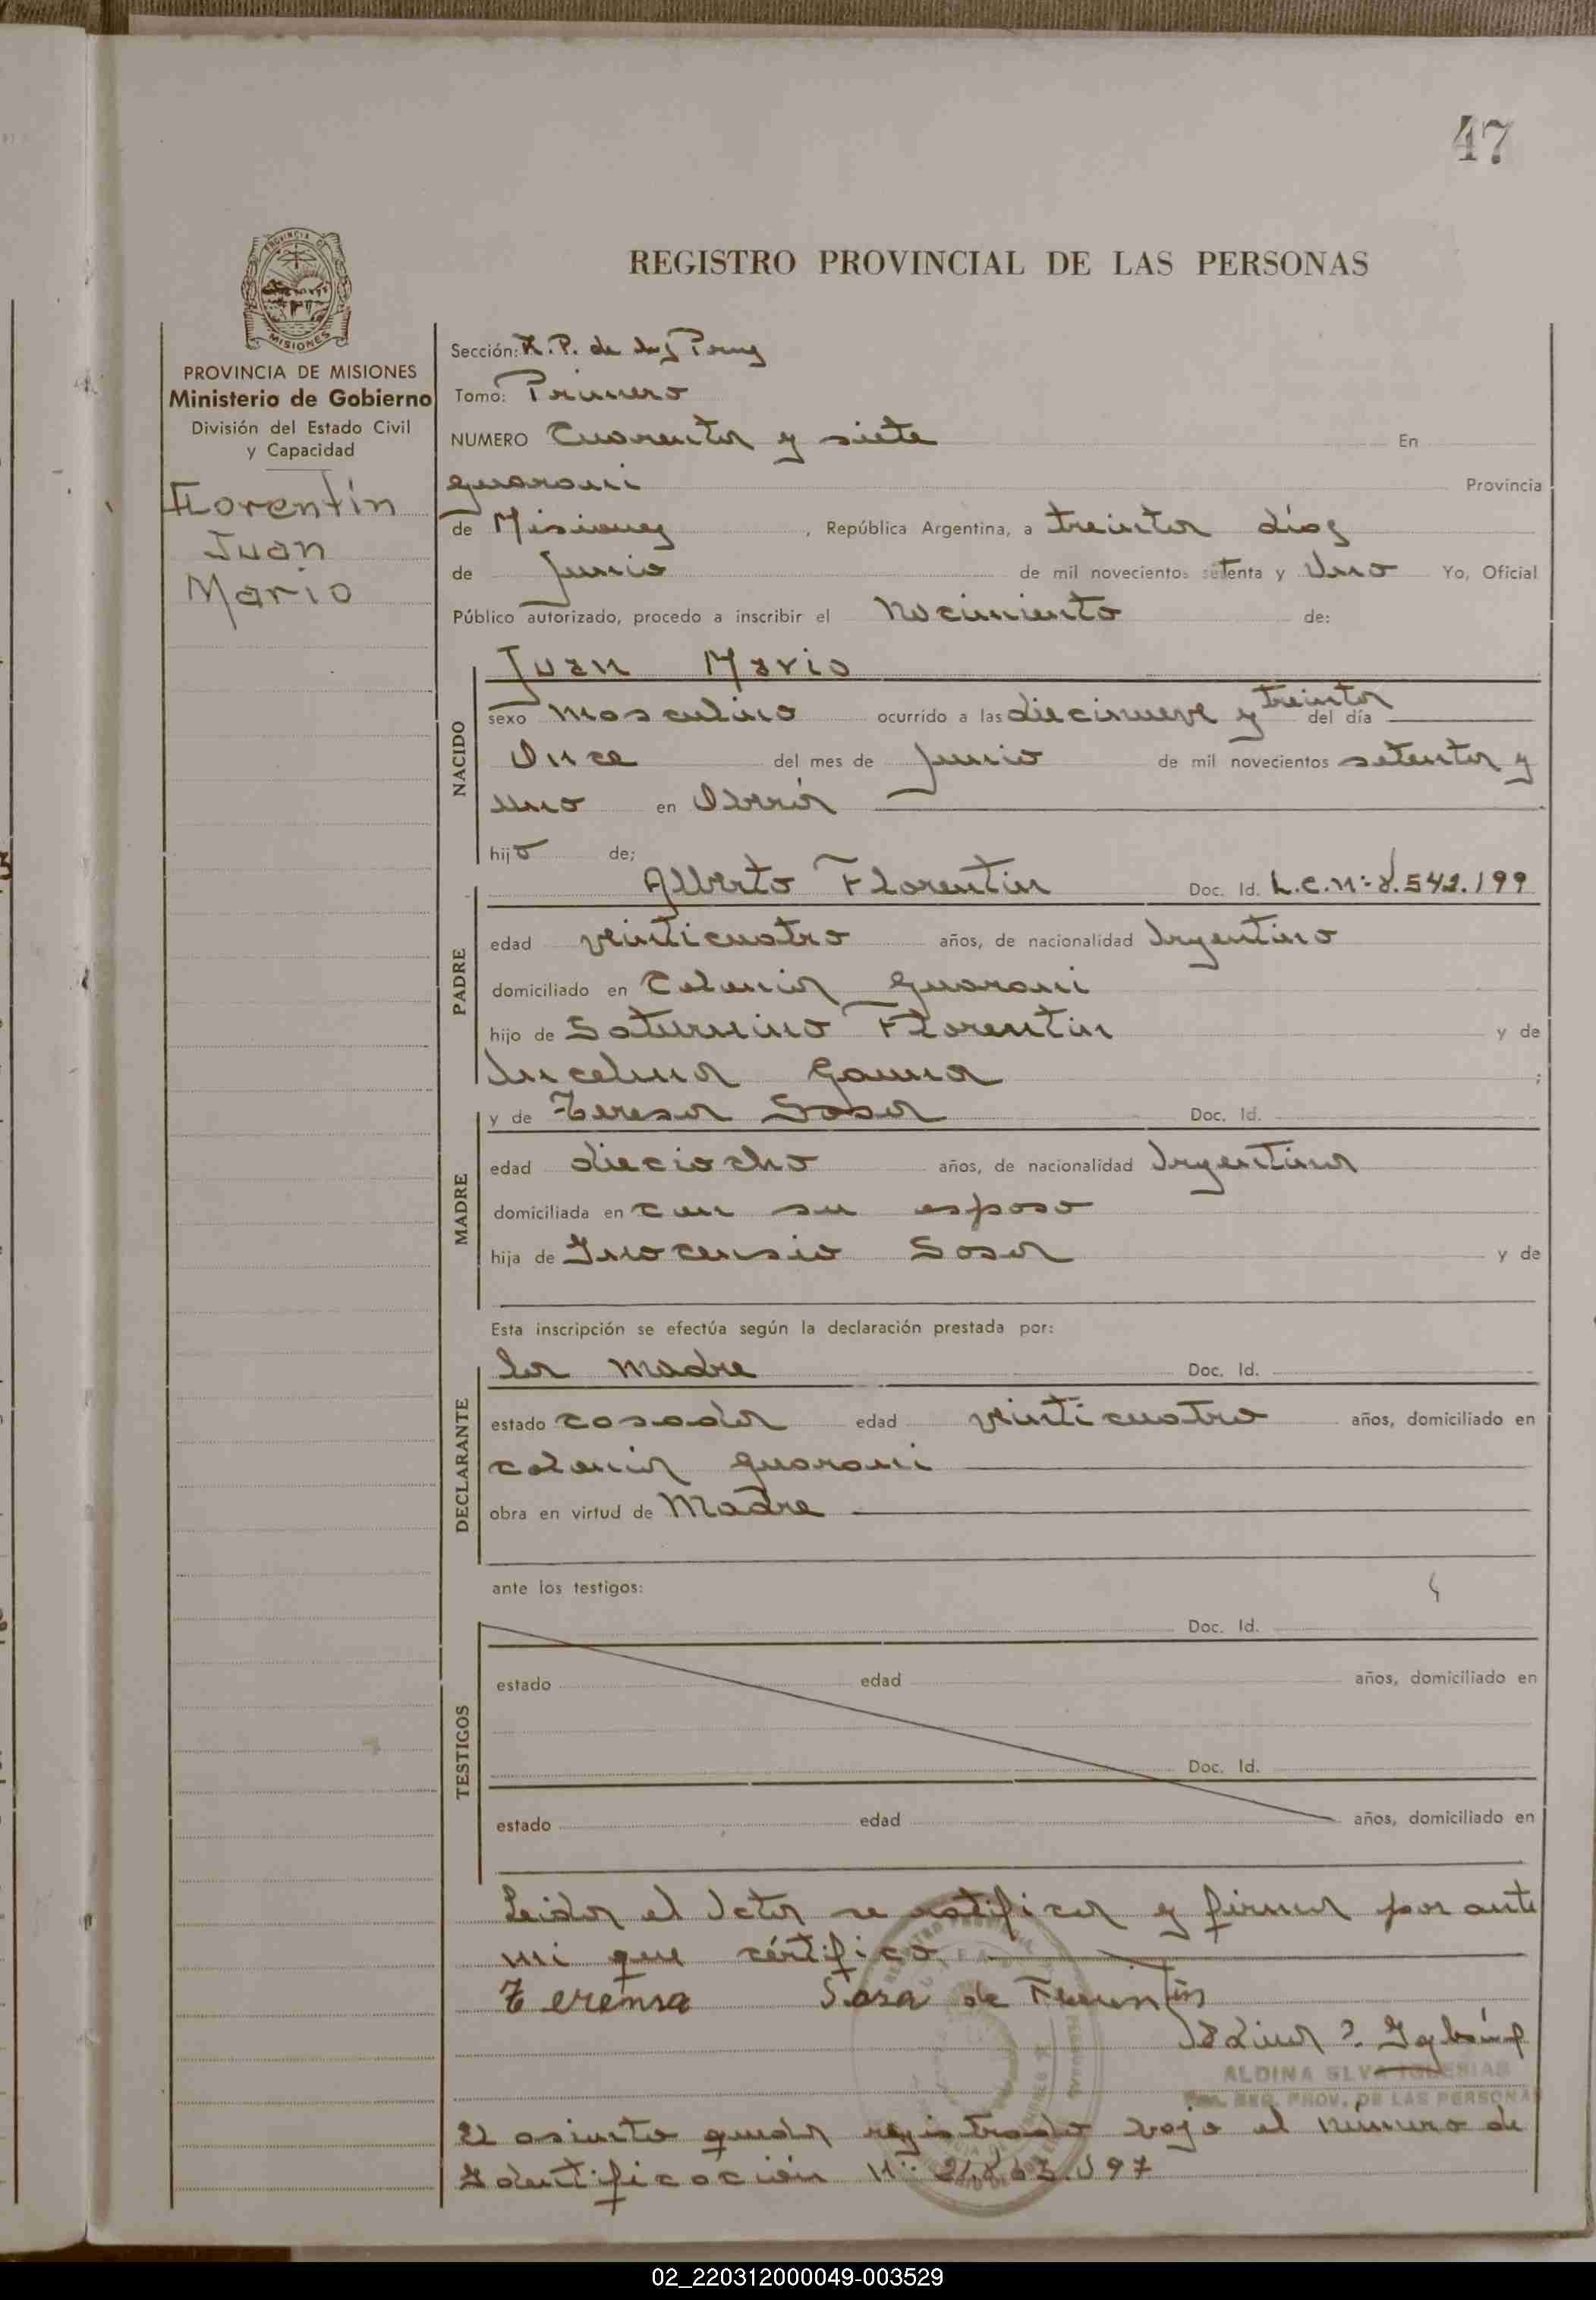 47
REGISTRO PROVINCIAL DE LAS PERSONAS
PROVINCIA DE
MISIONES
PROVINCIA DE MISIONES
Ministerio de Gobierno
División del Estado Civil
y Capacidad
Florentín
Juan
Mario
Sección: R.P. de las Pers
Tomo: Primero
NUMERO Cuarenta y siete En
Guarani Provincia
de Misiones, República Argentina, a treinta días
de Junio de mil novecientos setenta y Uno Yo, Oficial
Público autorizado, procedo a inscribir el Nacimiento de:
NACIDO
Juan Mario
sexo masculino ocurrido a las diecinueve y treinta del día
Once del mes de Junio de mil novecientos setenta y
uno en Oberá
hijo de;
PADRE
Alberto Florentin Doc. Id. L.E.Nº 8.542.199
edad veinticuatro años, de nacionalidad Argentino
domiciliado en Colonia Guarani
hijo de Saturnino Florentin y de
Ancelma Gauna ;
MADRE
y de Teresa Sosa Doc. Id.
edad dieciocho años, de nacionalidad Argentina
domiciliada en con su esposo
hija de Inocensio Sosa y de
Esta inscripción se efectúa según la declaración prestada por:
DECLARANTE
la madre Doc. Id.
estado casada edad veinticuatro años, domiciliado en
colonia Guarani
obra en virtud de Madre
ante los testigos:
TESTIGOS
Doc. Id.
estado edad años, domiciliado en
Doc. Id.
estado edad años, domiciliado en
Leida el Acta se ratifica y firma por ante
mi que certifico
Terensa Sosa de Florintin
ALDINA ELVA IGLESIAS
REG. PROV. DE LAS PERSONAS
El asiento queda registrado bajo el número de
Identificación Nº
02_220312000049-003529